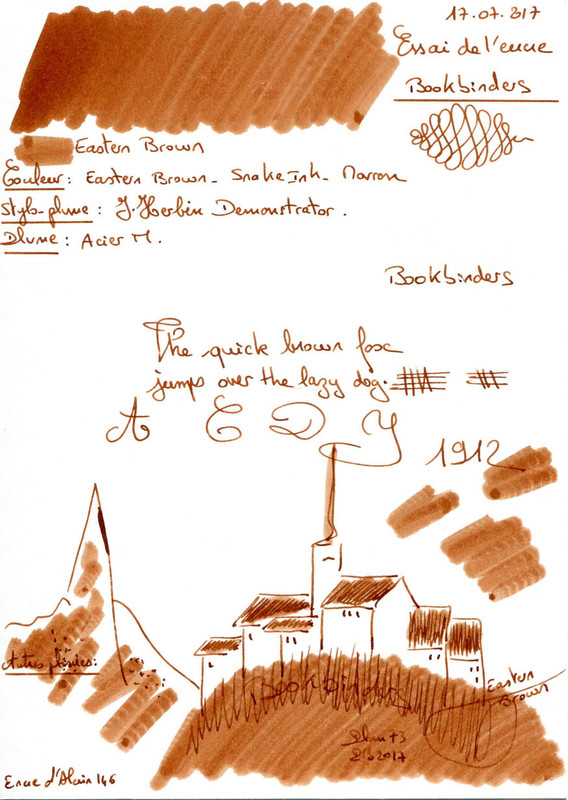 17.07.2017
Essai de l'encre
Bookbinders
Eastern Brown
Couleur : Eastern Brown - Snake Ink - Marron
Stylo-plume : J. Herbin Demonstrator .
Plume : Acier M.
Bookbinders
The quick brown fox
jumps over the lazy dog.
A E D Y
1912
Autres plumes :
Bookbinders
Eastern
Brown
2017
Encre d'Alain 146